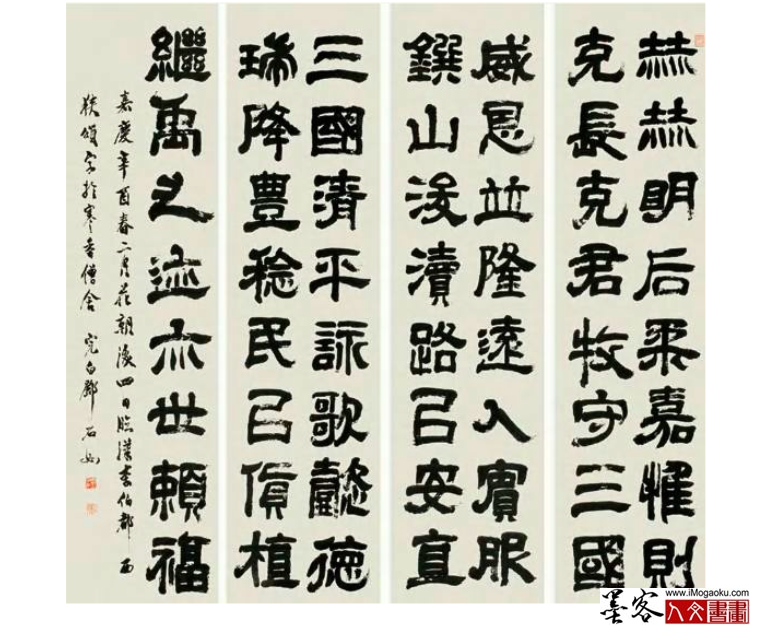 赫赫明后柔嘉惟則
克長克君牧守三國
威恩並隆遠人賓服
鐉山浚瀆路㠯安直
三國清平詠歌懿德
瑞降豊稔民㠯貨植
繼禹之迹亦世賴福
嘉慶辛酉春二月花朝後四日臨漢李伯都西
狹頌字於寒香僧舍 完白鄧石如
墨客
www.iMogaoku.com
人文書畫